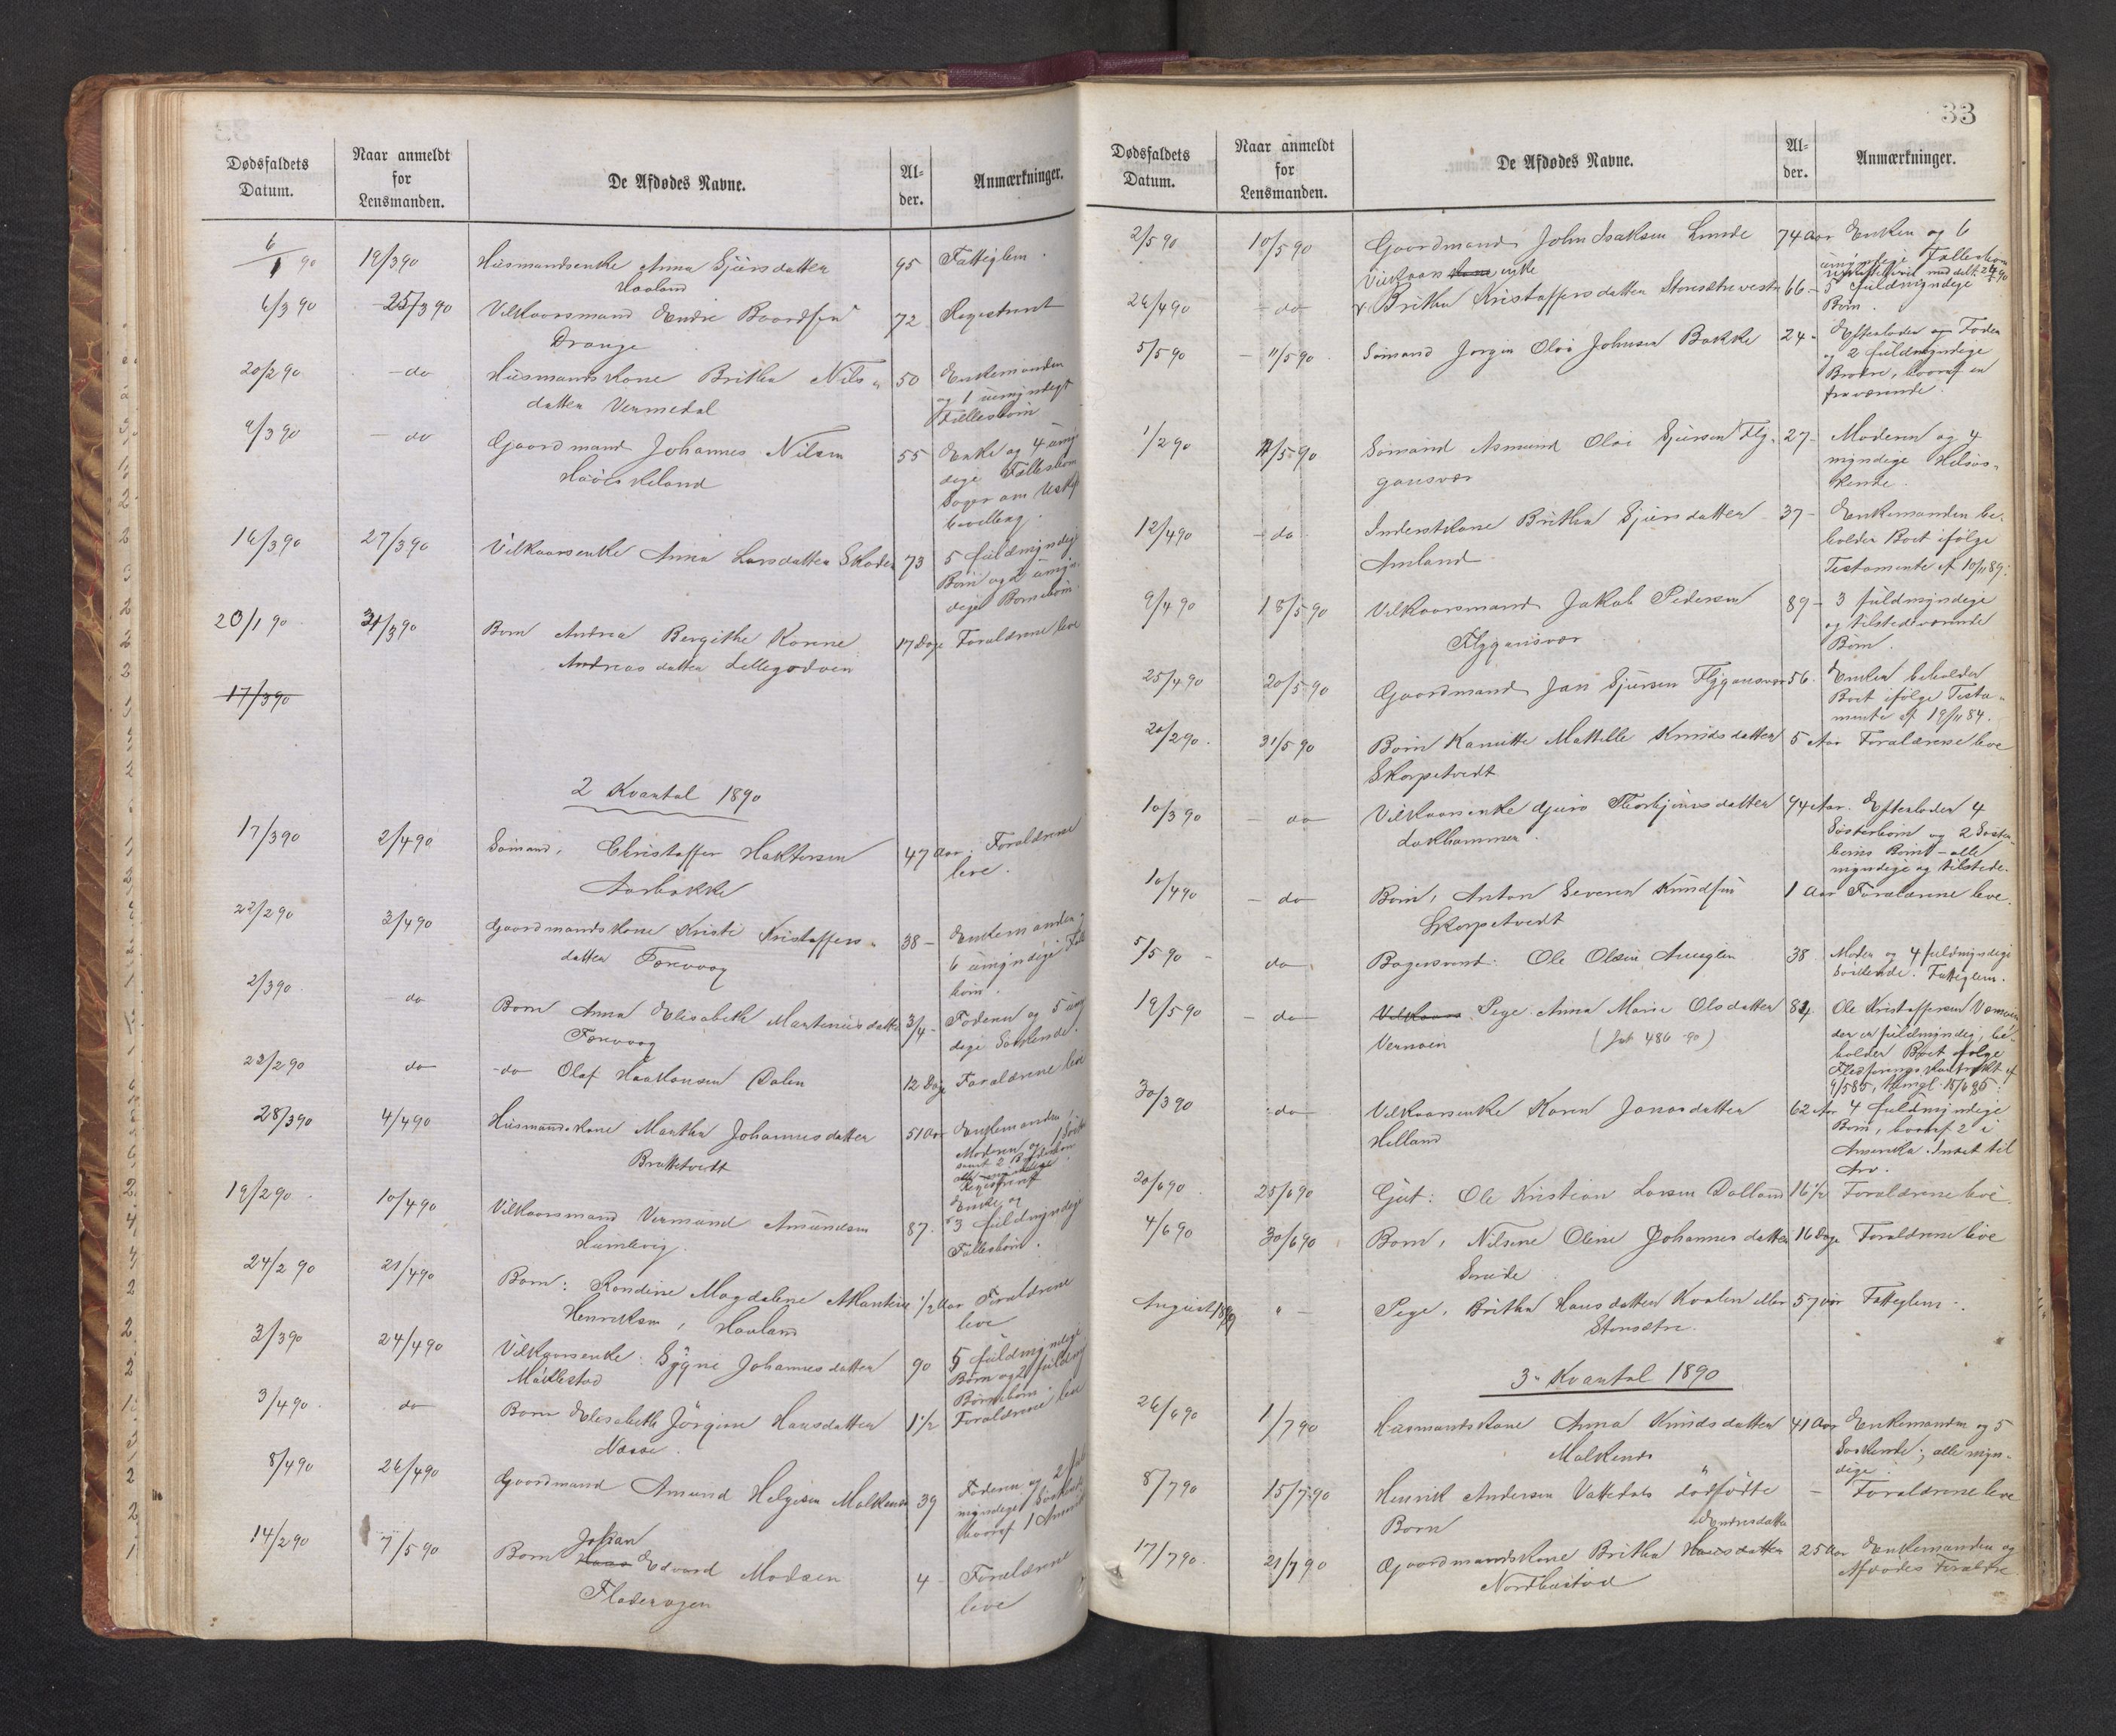 Dødsfaldets Datum.
Naar anmeldt for Lensmanden.
De Afdødes Navne.
Al-der.
Anmærkninger.
6/1 90 19/3 90 Husmandsenke Anna Sjursdatter 95 Fattiglem.
Haaland
6/3 90 25/3 90 Vilkaarsmand Endre Baardsen 72 Registreret
Drange
20/2 90 - do Husmandskone Britha Nils- 50 Enkemanden
datter Vermedal og 1 umyndigt
Fællesbørn
9/3 90 - do Gaardmand Johannes Nilsen 55 Enke og 4 umyn
dige Fællesbørn
Søger om Uskif
bevilling.
16/3 90 27/3 90 Vilkaarsenke Anna Larsdatter 73 5 fuldmyndige
Børn og 2 umyn
dige Børnebørn
20/1 90 31/3 90 Barn Andrea Bergithe Korine 17 Dage Forældrene leve
Andreasdatter
17/3 90
2 Kvartal 1890
17/3 90 2/4 90 Sømand, Christoffer Haktorsen 47 Aar. Forældrene
Aarbakke leve.
22/2 90 3/4 90 Gaardmandskone Kristi Kristoffers- 38 - Enkemanden og
datter 6 umyndige Fælles
børn.
2/3 90 - do Barn Anna Elisabeth Martinusdatter 3/4 - Faderen og 5 umyn
dige Søskende.
22/2 90 do - do Olaf Haakonsen Dalen 12 Dage Forældrene leve
28/3 90 4/4 90 Husmandskone Martha Johannesdatter 51 Aar Enkemanden,
Brattetvedt Moderen og 1 Søster
samt 2 Broderbørn
alle myndige
Registreret
19/2 90 10/4 90 Vilkaarsmand Vermund Amundsen 87. Enke og
Humlevig. 3 fuldmyndige
Fællesbørn.
24/2 90 21/4 90 Barn: Magdalene 1/2 Aar Forældrene
Henriksen, Haaland leve
2/3 90 24/4 90 Vilkaarsenke: Sygni Johannesdatter 90 5 fuldmyndige
Børn og 2 fuldmyn
Børnebørn.
3/4 90 do Barn Elisabeth Jørgine Hansdatter 1 1/2 Forældrene leve
Næsse.
8/4 90 26/4 90 Gaardmand Amund Helgesen Malkenes 39 Faderen og 2 ful
myndige Søskende
hvoraf 1
14/2 90 7/5 90 Johan
Barn Edvard Madsen 4 - Forældrene
Fladevagen leve
33
Dødsfaldets Datum.
Naar anmeldt for Lensmanden.
De Afdødes Navne.
Al-der.
Anmærkninger.
2/5 90 10/5 90 Gaardmand John Isaksen Lunde 74 Aar Enken og 6
umyndige Fællesbørn
26/4 90 - do Vilkaars Kone enke
Britha Kristoffersdatter Storsætre vestre 66 - 5 fuldmyndige
Børn.
5/5 90 - 11/5 90. Sømand Jørgen Olai Johnsen Bakke 24 - Efterlader og Fader
og 2 fuldmyndige
Brødre, hvoraf en
fraværende.
1/2 90 11/5 90 Sømand Asmund Olai Sjursen Fly- 27 - Moderen og 4
gansvær myndige Helsøs-
kende.
12/4 90 - do Inderstkone Britha Sjursdatter 37 - Enkemanden be-
Amland holder Boet ifølge
Testamente af 10/11 89.
9/4 90 18/5 90 Vilkaarsmand Jakob Pedersen 89 - 3 fuldmyndige
Flygansvær og tilstedeværende
Børn.
25/4 90 20/5 90 Gaardmand Jan Sjursen Flygansvær 56. Enken beholder
Boet ifølge Testa-
mente af 19/11 84.
20/2 90. 31/5 90 Barn Kanutte Mathilde Knudsdatter 5 Aar Forældrene leve
Skorpetvedt
10/3 90 - do Vilkaarsenke Guro Thorbjørnsdatter 94 Aar. Efterlader 4
Lokhammer. Søsterbørn og 2 Søster
børns Børn - alle
myndige og tilstede.
10/4 90 - do Barn, Anton Severin Knudsen 1 Aar Forældrene leve.
Skorpetvedt
5/5 90 - do Bagersvend: Ole Olsen 38 Moder og 4 fuldmyndige
Søskende. Fattiglem.
19/5 90 - do Vilkaars Pige Anna Marie Olsdatter 84. Ole Kristoffersen
Vernøen (Jnl 486 90) der er fuldmyndig, be-
holder Boet ifølge
Kontrakt af
9/5 85, thingl.
30/3 90 do Vilkaarsenke Karen Jonasdatter 62 Aar 4 fuldmyndige
Helland Børn, hvoraf 2 i
Amerika. Intet til
Arv.
20/6 90 25/6 90 Gut: Ole Kristian Larsen Dalland 16 1/2 Forældrene leve
4/6 90 30/6 90 Barn, Nilsine Oline Johannesdatter 16 Dage Forældrene leve
August 1889 " - Pige, Britha Hansdatter Kvalen eller 57 Aar Fattiglem -.
Storsætre.
3- Kvartal 1890
26/6 90 1/7 90 Husmandskone Anna Knudsdatter 41 Aar Enkemanden og 5
Malkenes Søskende; alle myn-
dige.
8/7 90 15/7 90 Henrik Andersen Vattedals dødfødte - Forældrene leve
Barn
17/7 90. 21/7 90 Endresdatter
Gaardmandskone Britha Hansdatter 25 Aar Enkemanden og
Nordhustad Afdødes Forældre.